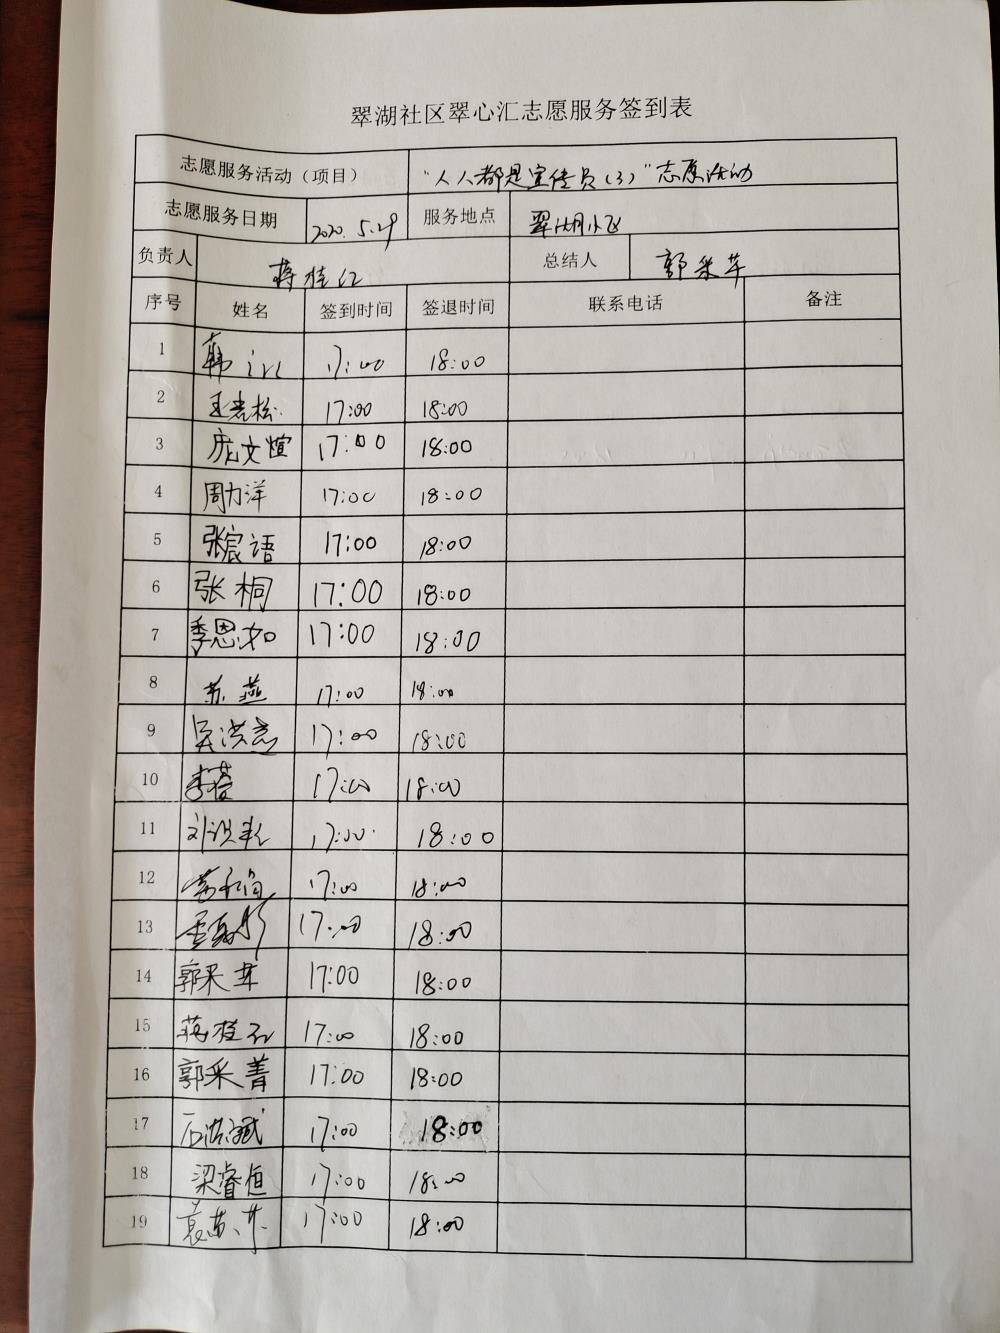 翠湖社区翠心汇志愿服务签到表
志愿服务活动（项目） “人人都是宣传员（3）”志愿活动
志愿服务日期 2020.5.29 服务地点 翠湖小区
负责人 蒋桂红 总结人 郭采芊
序号 姓名 签到时间 签退时间 联系电话 备注
1 韩 17:00 18:00
2 王志松 17:00 18:00
3 庞文煊 17:00 18:00
4 周力洋 17:00 18:00
5 张宸语 17:00 18:00
6 张桐 17:00 18:00
7 季思如 17:00 18:00
8 苏燕 17:00 18:00
9 吴洪志 17:00 18:00
10 李蓉 17:00 18:00
11 刘 17:00 18:00
12 17:00 18:00
13 17:00 18:00
14 郭采芊 17:00 18:00
15 蒋桂红 17:00 18:00
16 郭采菁 17:00 18:00
17 石洪斌 17:00 18:00
18 梁睿恒 17:00 18:00
19 袁 17:00 18:00